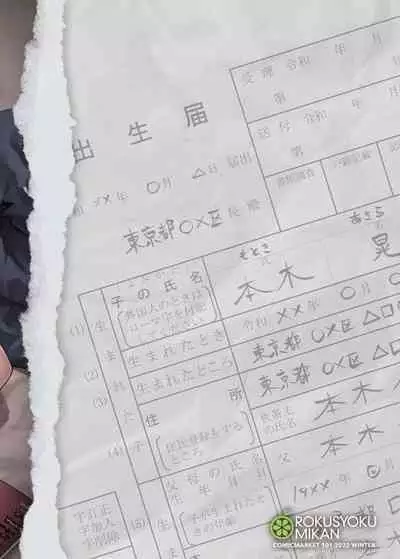 出生届
受理 令和 年 月
第
送付 令和 年 月
第
書類調査 戸籍記載
××年 ○月 △日 届出
東京都○×区長 殿
もとき
あきら
子の氏名
外国人のときは
ローマ字を付記
してください
本木 晃
(1) 生
生まれたとき
令和 ×× 年 ○月
(2) ま
生まれたところ
東京都 ○×区 △□
(3) れ
住所
東京都 ○×区 △□
(4) た子
住民登録をする
ところ
世帯主
の氏名
本木
父母の氏名
生年月日
子が生まれたと
きの年齢
父
本木
(5)
19×× 年
字訂正
字加入
字削除
ROKUSYOKU
MIKAN
COMICMARKET 101 2022 WINTER